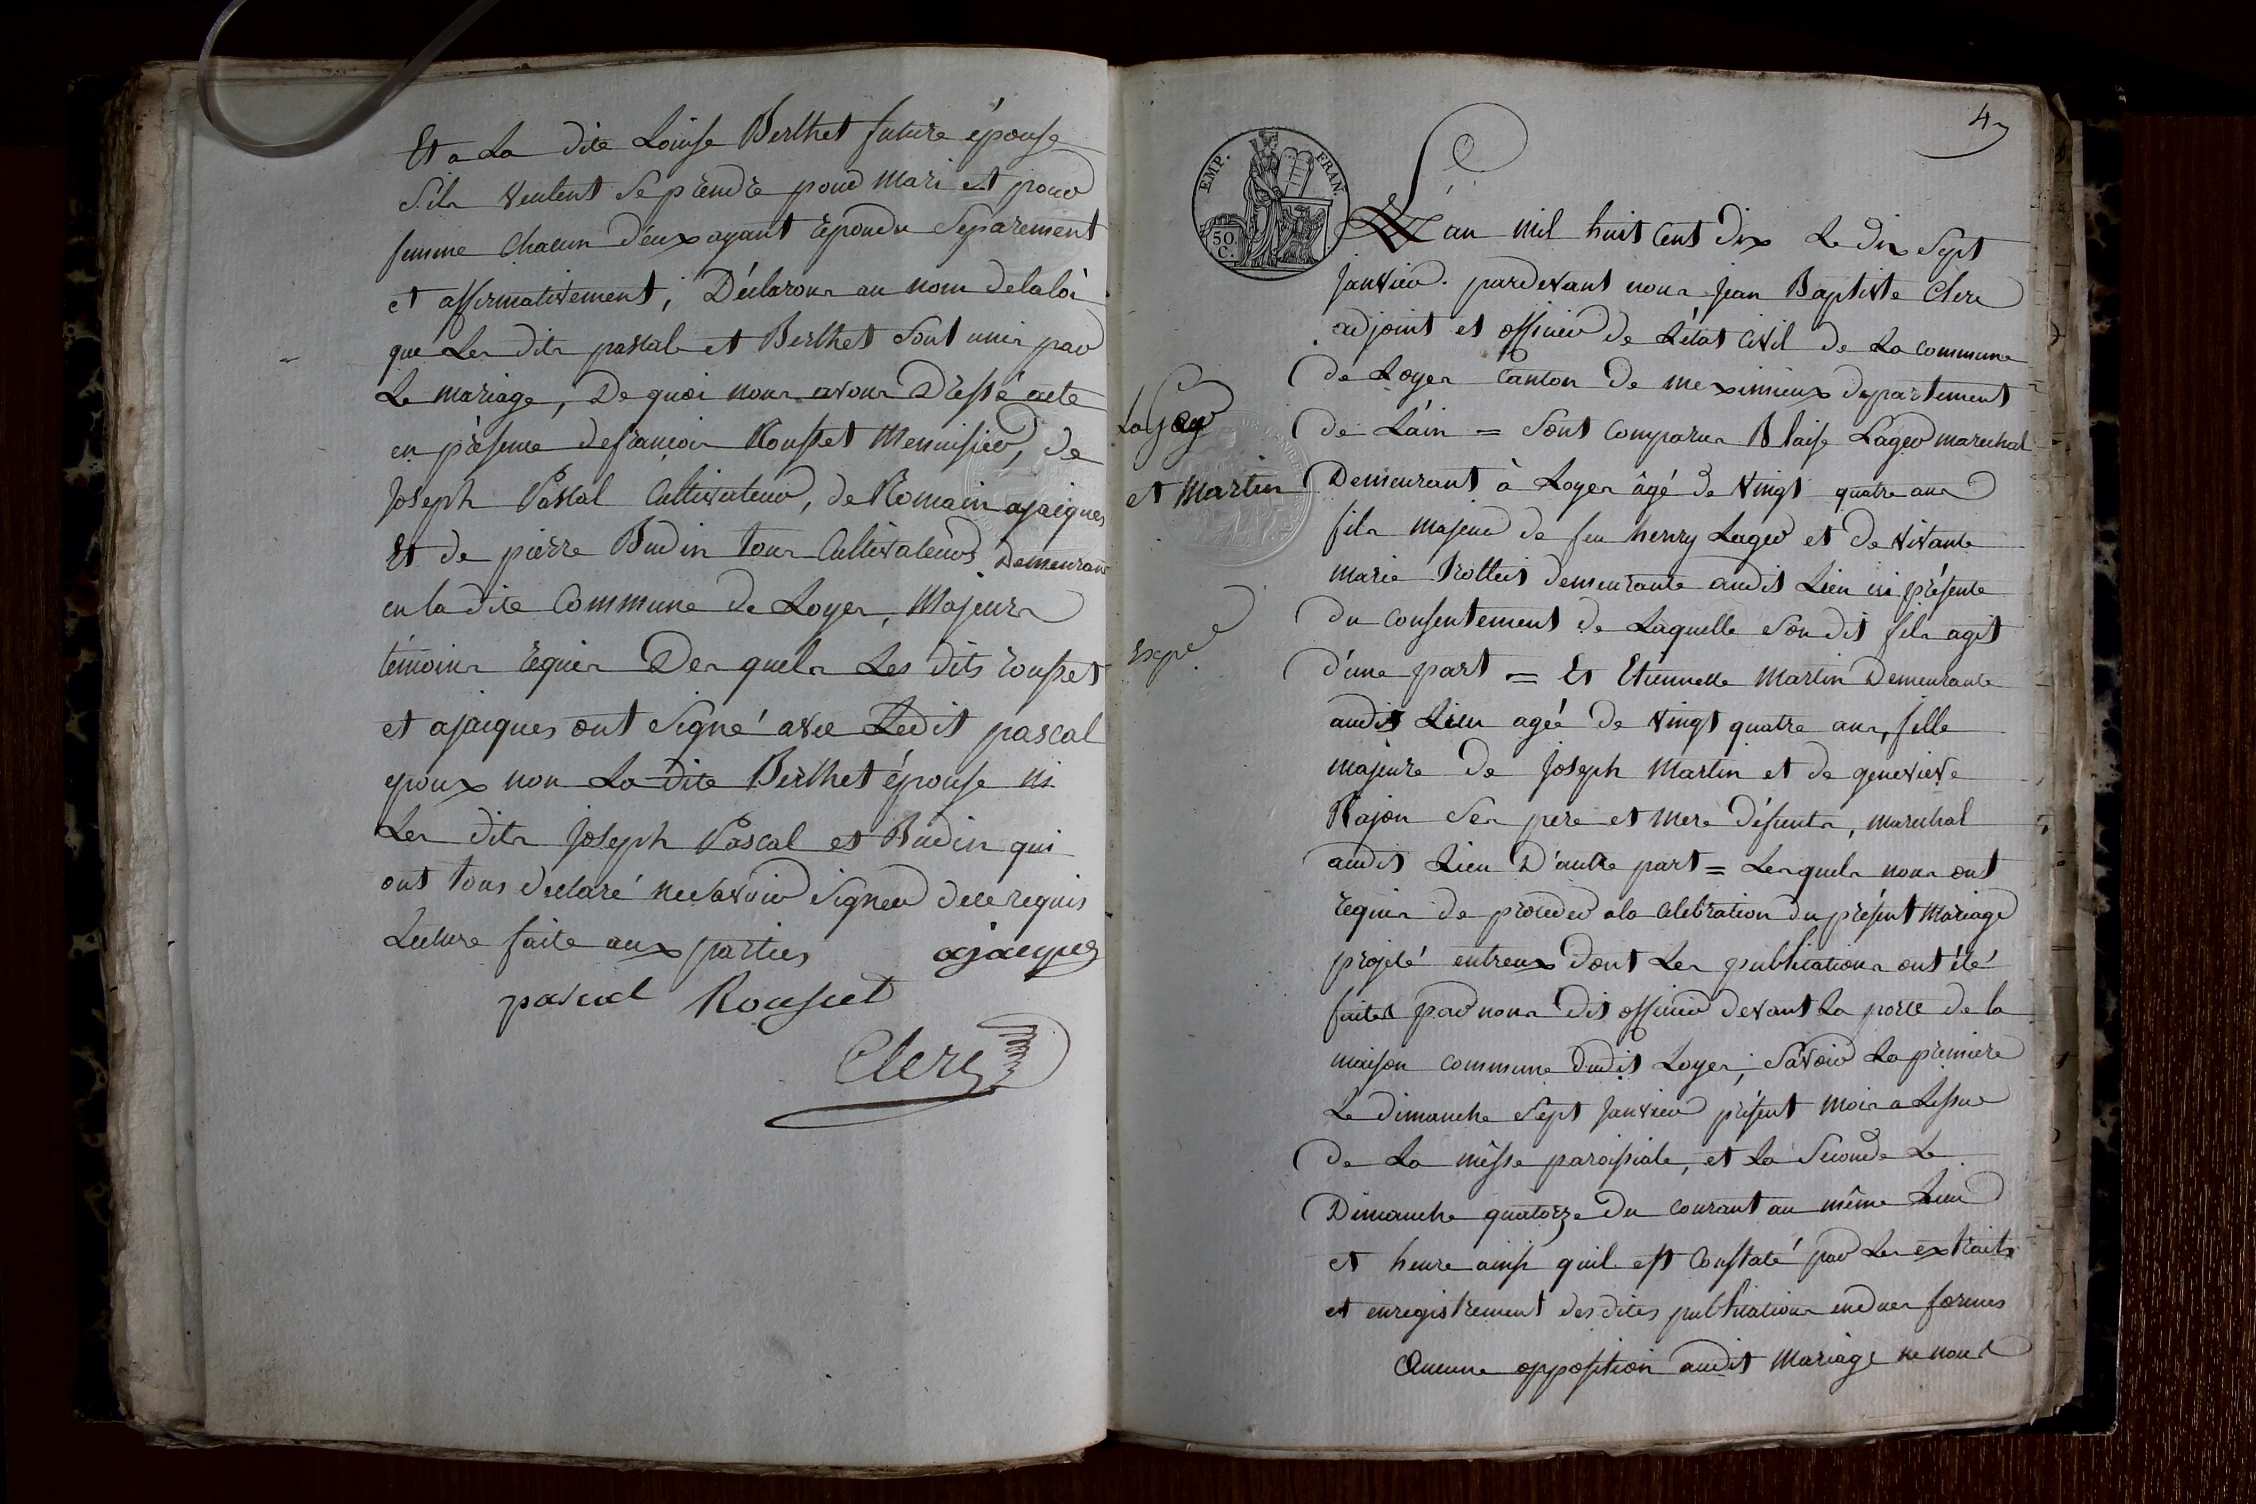 Et a La dite Loüise Berthet future épouse
S'ils veulent se prendre pour Mari et pour
femme Chacun d'eux ayant repondu Séparement
et affirmativement; Déclarons au nom de la loi
que Les dits pascal et Berthet Sont unis par
Le mariage, De quoi nous avons Dressé acte
en présence de françois Rousset Menuisier, de
Joseph Pascal Cultivateur, de Romain ajacques
Et de pierre Budin tous Cultivateurs Demeurant
en la dite Commune de Loyes, Majeurs
témoins requis Des quels Les dits rousset
et ajacques ont Signé avec Ledit pascal
epoux non La dite Berthet épouse ni
Les dits Joseph Pascal et Budin qui
ont tous declaré ne savoir Signer de ce requis
Lecture faite aux parties ajacques
pascal Rousset
Clerc
4
EMP. FRAN.
50 C.
L'an mil huit Cent dix Le dix Sept
Janvier. pardevant nous Jean Baptiste Clerc
adjoint et officier de L'état Civil de La commune
de Loyes Canton de meximieux departement
de L'ain = Sont Comparus Blaise Lager marechal
Demeurant à Loyes âgé de Vingt quatre ans
fils majeur de feu henry Lager et de vivante
marie Trollier demeurante audit Lieu ici présente
du Consentement de Laquelle Son dit fils agit
d'une part = Et Etiennette Martin Demeurante
audit Lieu agée de Vingt quatre ans, fille
majeure de Joseph Martin et de genevieve
Rajon Ses pere et Mere défunts, marechal
audit Lieu D'autre part = Lesquels nous ont
requis de proceder a la Celebration du présent Mariage
projeté entreux dont Les publications ont été
faites par nous dit officier devant La porte de la
maison commune dudit Loyes; Savoir La premiere
Le dimanche Sept Janvier présent mois a L'issue
de La messe paroissiale, et La Seconde Le
Dimanche quatorze du courant au même Lieu
et heure ainsi quil est Constaté par Les extraits
et enregistrement des dites publications en dues formes
Aucune opposition audit Mariage ne nous
Lager
et Martin
Expé